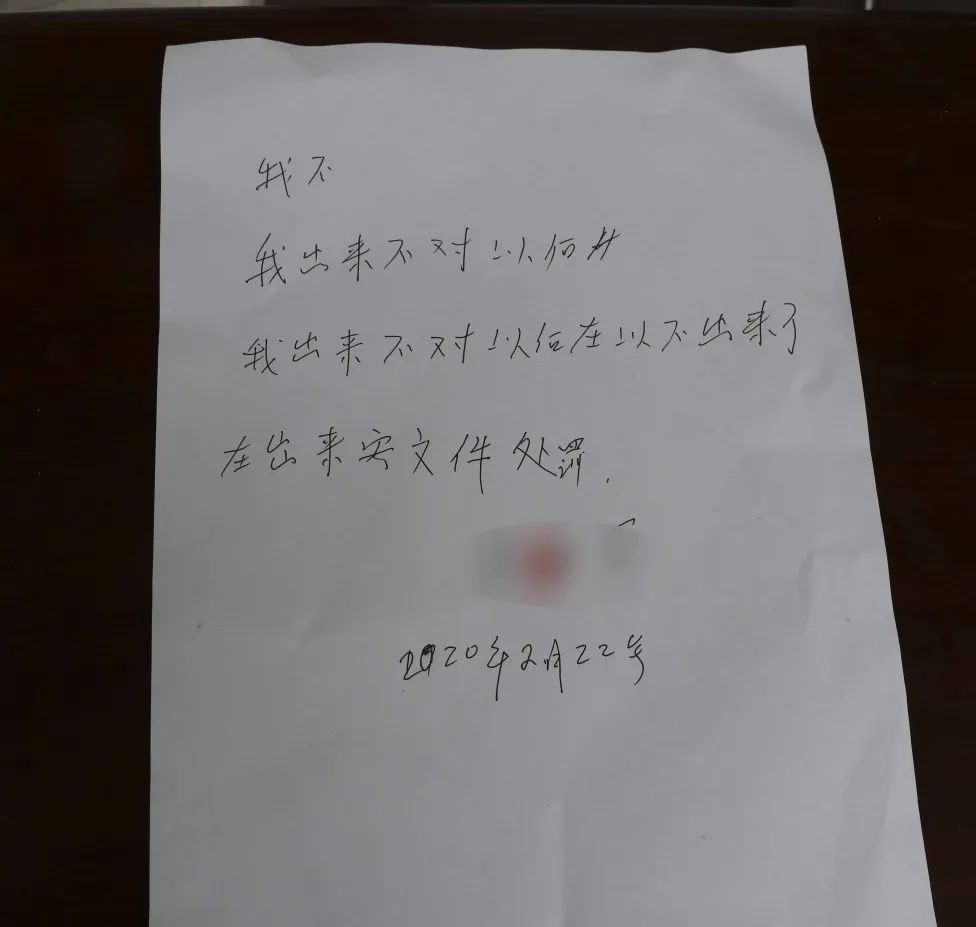 我不
我出来不对以后
我出来不对以后在以不出来了
在出来安文件处罚.
2020年2月22号